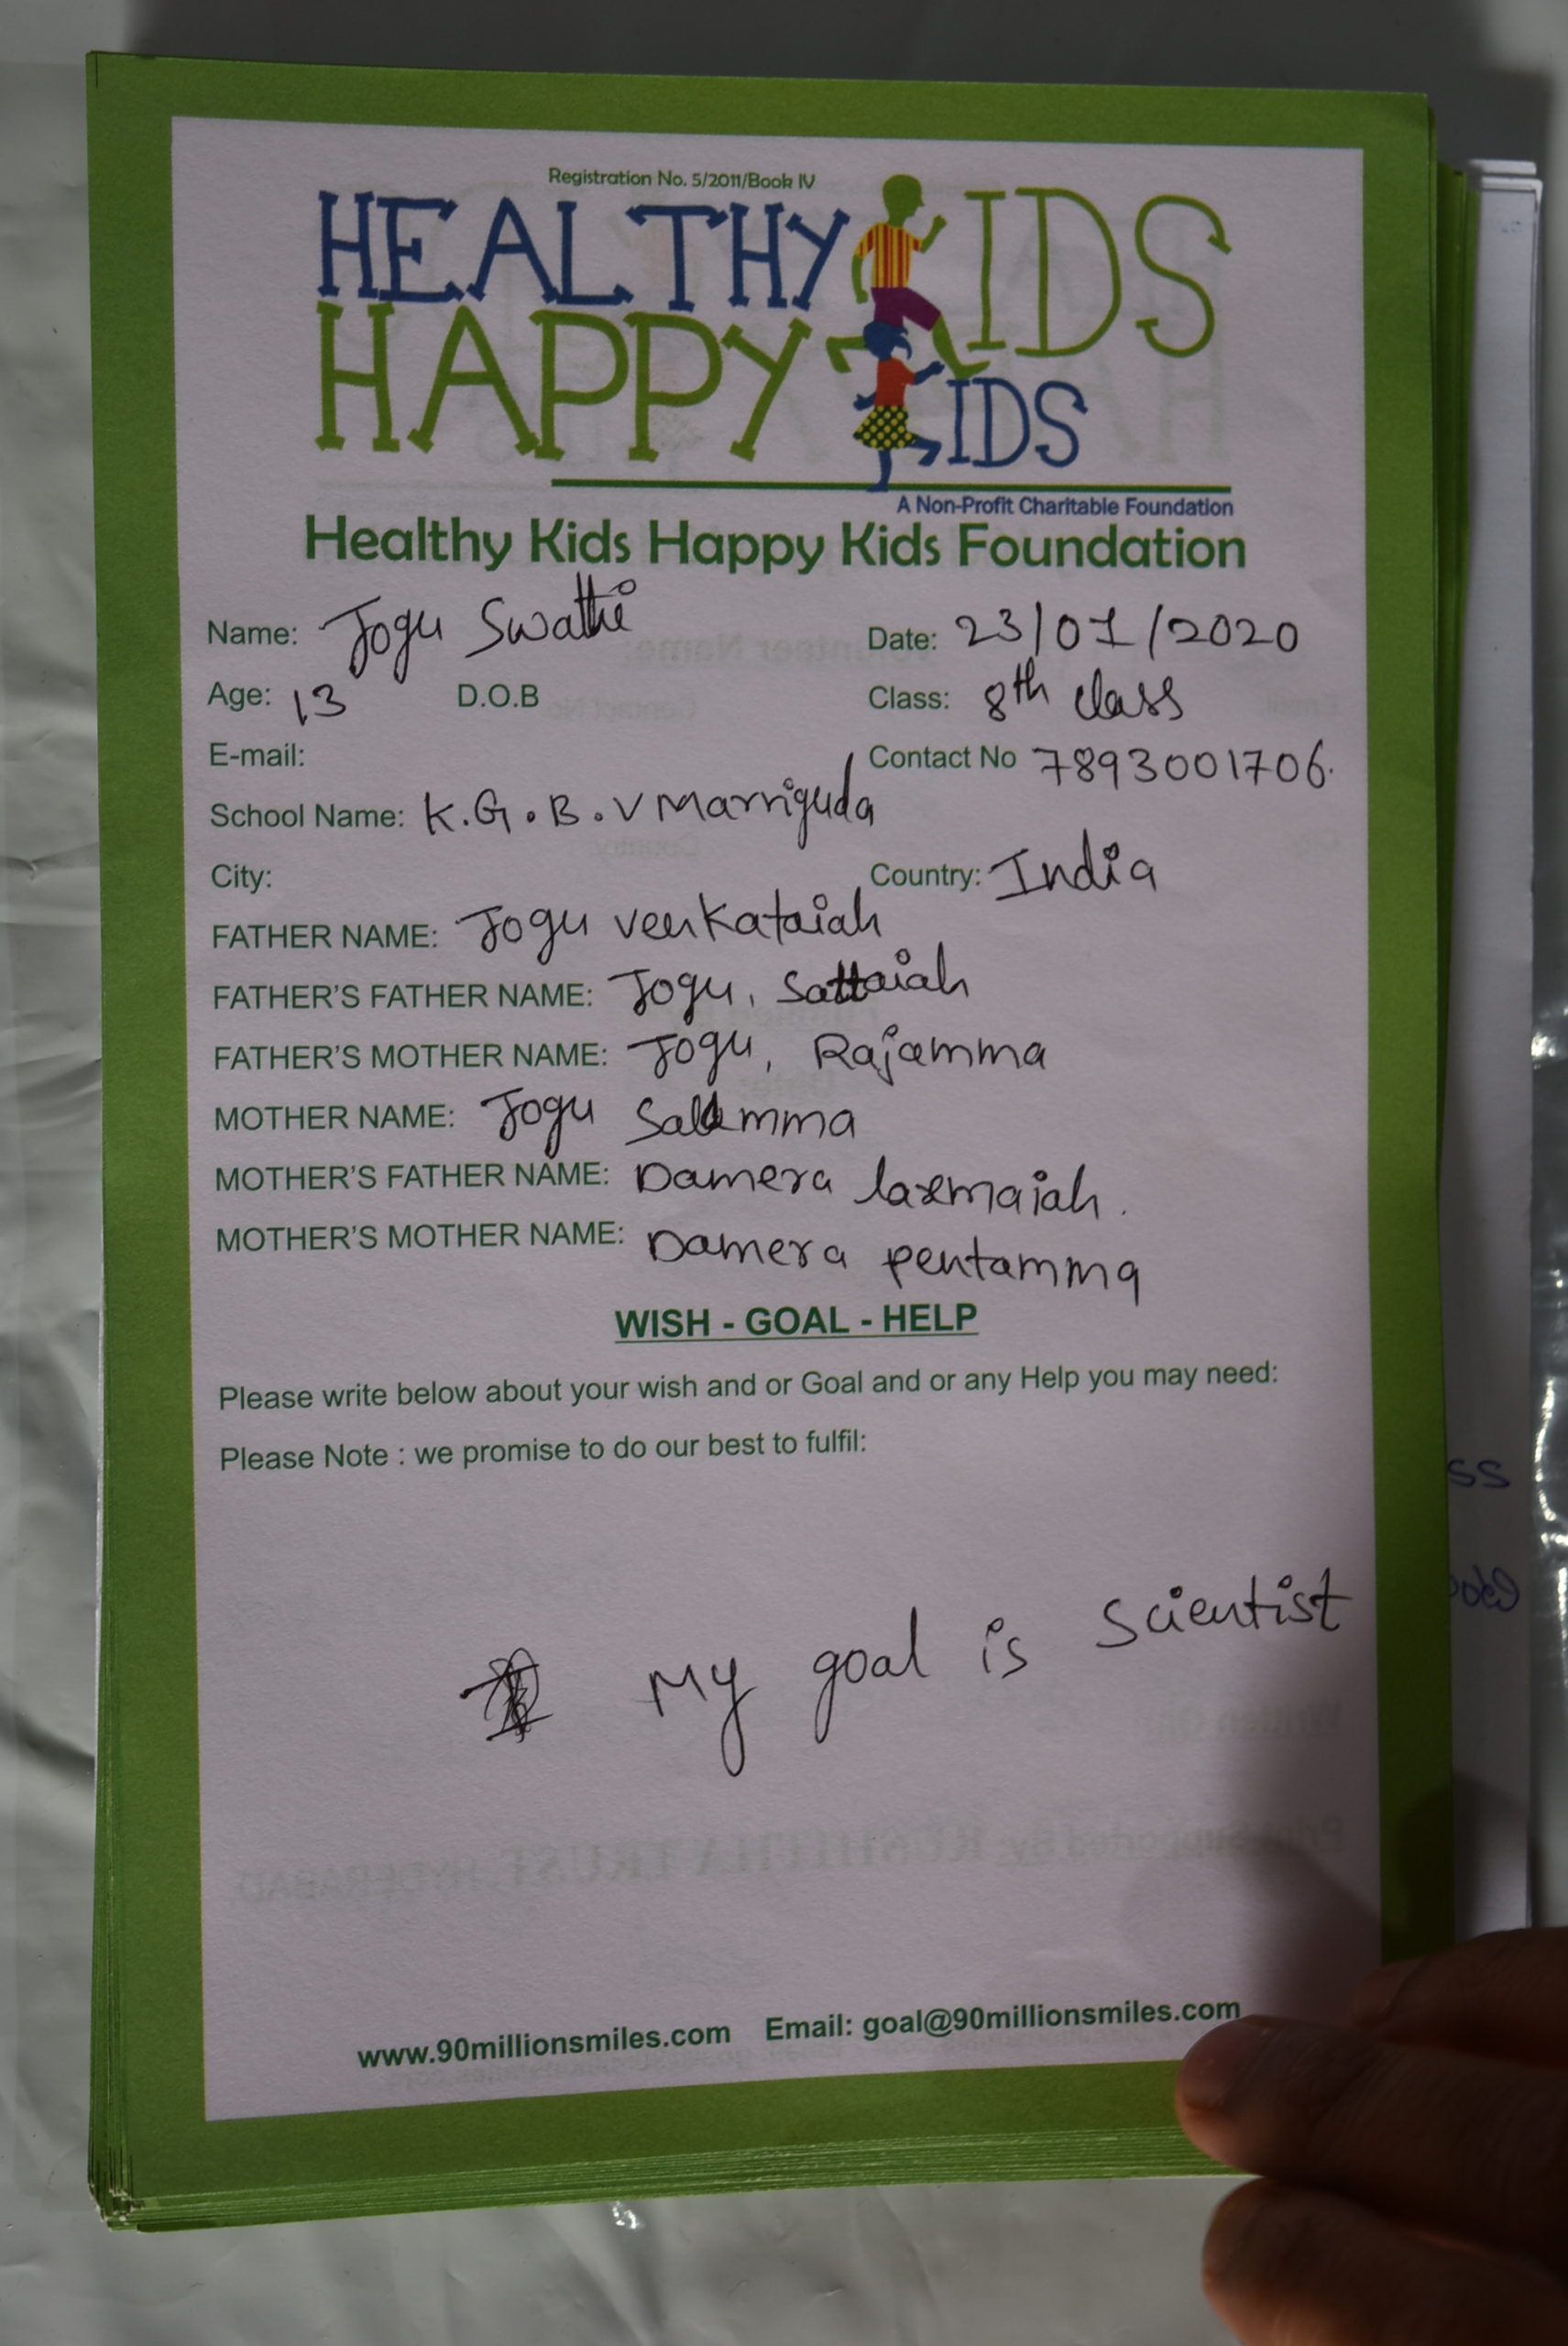 Registration No. 5/2011/Book IV
HEALTHY KIDS
HAPPY KIDS
A Non-Profit Charitable Foundation
Healthy Kids Happy Kids Foundation
Name: Jogu Swathi Date: 23/01/2020
Age: 13 D.O.B Class: 8th class
E-mail: Contact No 7893001706.
School Name: K.G.B.V Marriguda
City: Country: India
FATHER NAME: Jogu venkataiah
FATHER'S FATHER NAME: Jogu, Sattaiah
FATHER'S MOTHER NAME: Jogu, Rajamma
MOTHER NAME: Jogu
MOTHER'S FATHER NAME: Damera laxmaiah.
MOTHER'S MOTHER NAME: Damera pentamma
WISH - GOAL - HELP
Please write below about your wish and or Goal and or any Help you may need:
Please Note : we promise to do our best to fulfil:
My goal is scientist
www.90millionsmiles.com Email: goal@90millionsmiles.com